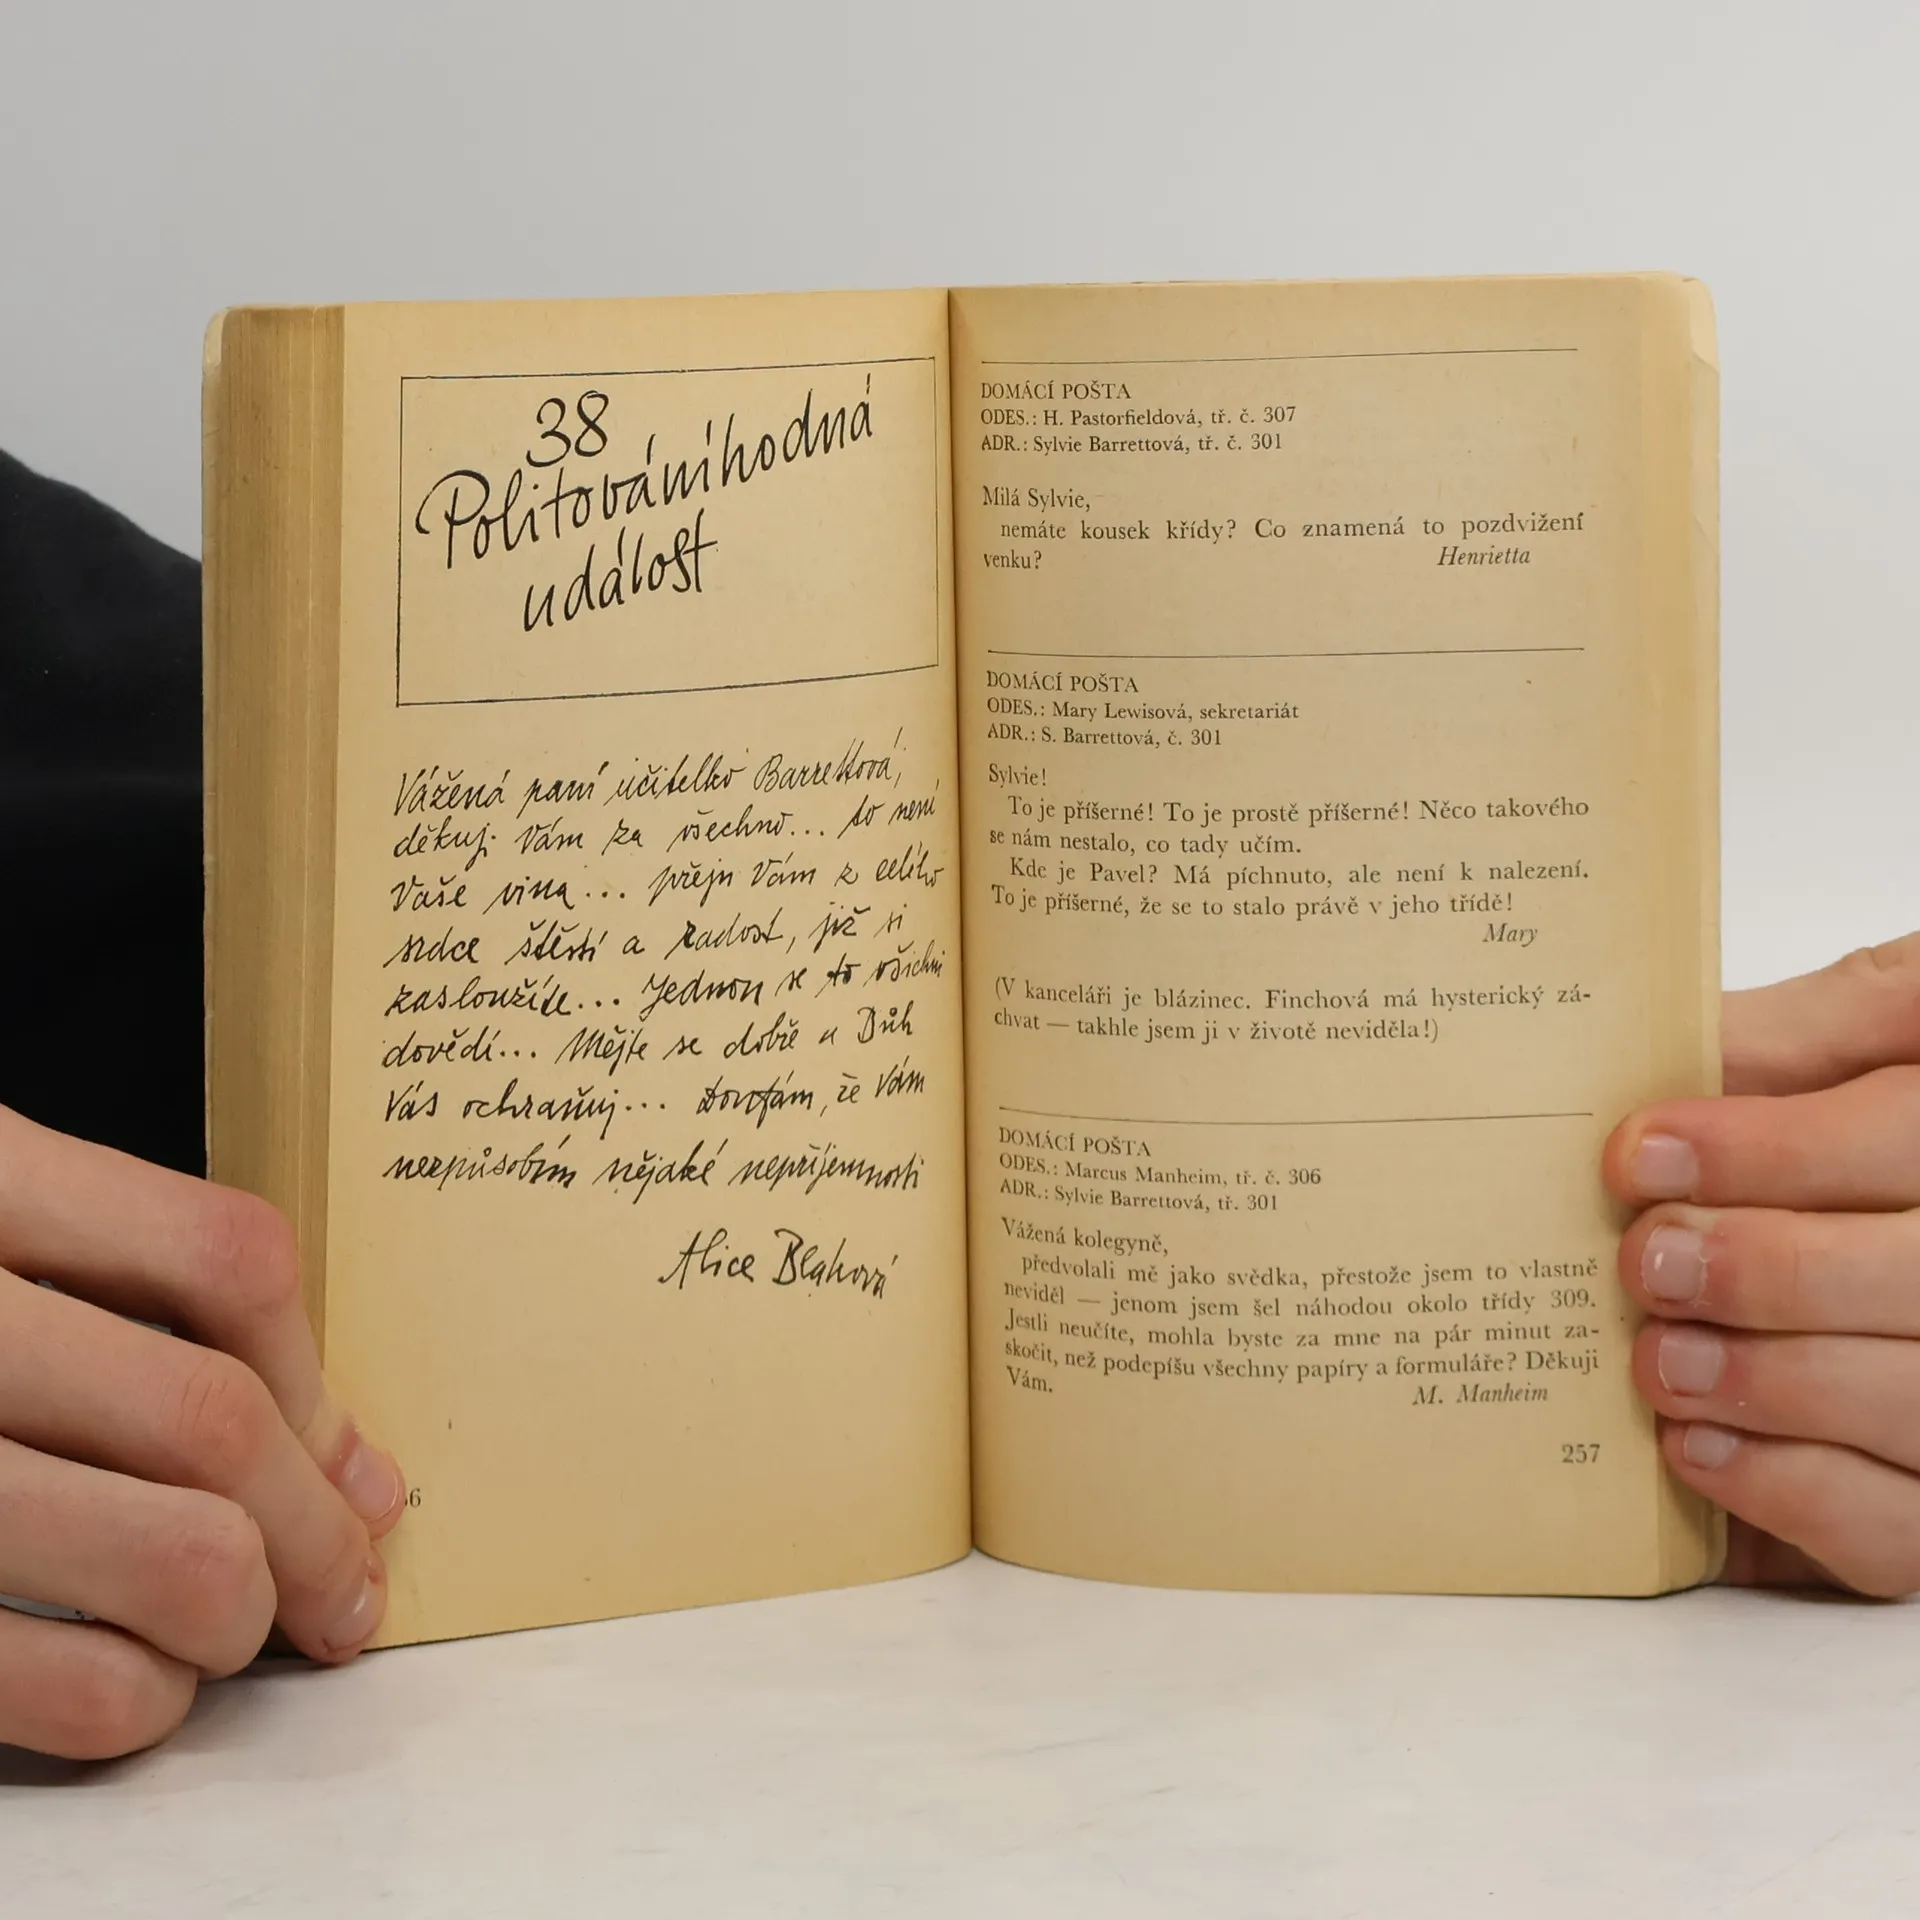 38
Politováníhodná
událost
Vážená paní učitelko Barrettová,
děkuji Vám za všechno... to není
Vaše vina... přeju Vám z celého
srdce štěstí a radost, již si
zasloužíte... Jednou se to všichni
dovědí... Mějte se dobře a Bůh
Vás ochraňuj... Doufám, že Vám
nezpůsobím nějaké nepříjemnosti
Alice Blaková
6
DOMÁCÍ POŠTA
ODES.: H. Pastorfieldová, tř. č. 307
ADR.: Sylvie Barrettová, tř. č. 301
Milá Sylvie,
nemáte kousek křídy? Co znamená to pozdvižení
venku? Henrietta
DOMÁCÍ POŠTA
ODES.: Mary Lewisová, sekretariát
ADR.: S. Barrettová, č. 301
Sylvie!
To je příšerné! To je prostě příšerné! Něco takového
se nám nestalo, co tady učím.
Kde je Pavel? Má píchnuto, ale není k nalezení.
To je příšerné, že se to stalo právě v jeho třídě!
Mary
(V kanceláři je blázinec. Finchová má hysterický zá-
chvat — takhle jsem ji v životě neviděla!)
DOMÁCÍ POŠTA
ODES.: Marcus Manheim, tř. č. 306
ADR.: Sylvie Barrettová, tř. 301
Vážená kolegyně,
předvolali mě jako svědka, přestože jsem to vlastně
neviděl — jenom jsem šel náhodou okolo třídy 309.
Jestli neučíte, mohla byste za mne na pár minut za-
skočit, než podepíšu všechny papíry a formuláře? Děkuji
Vám. M. Manheim
257